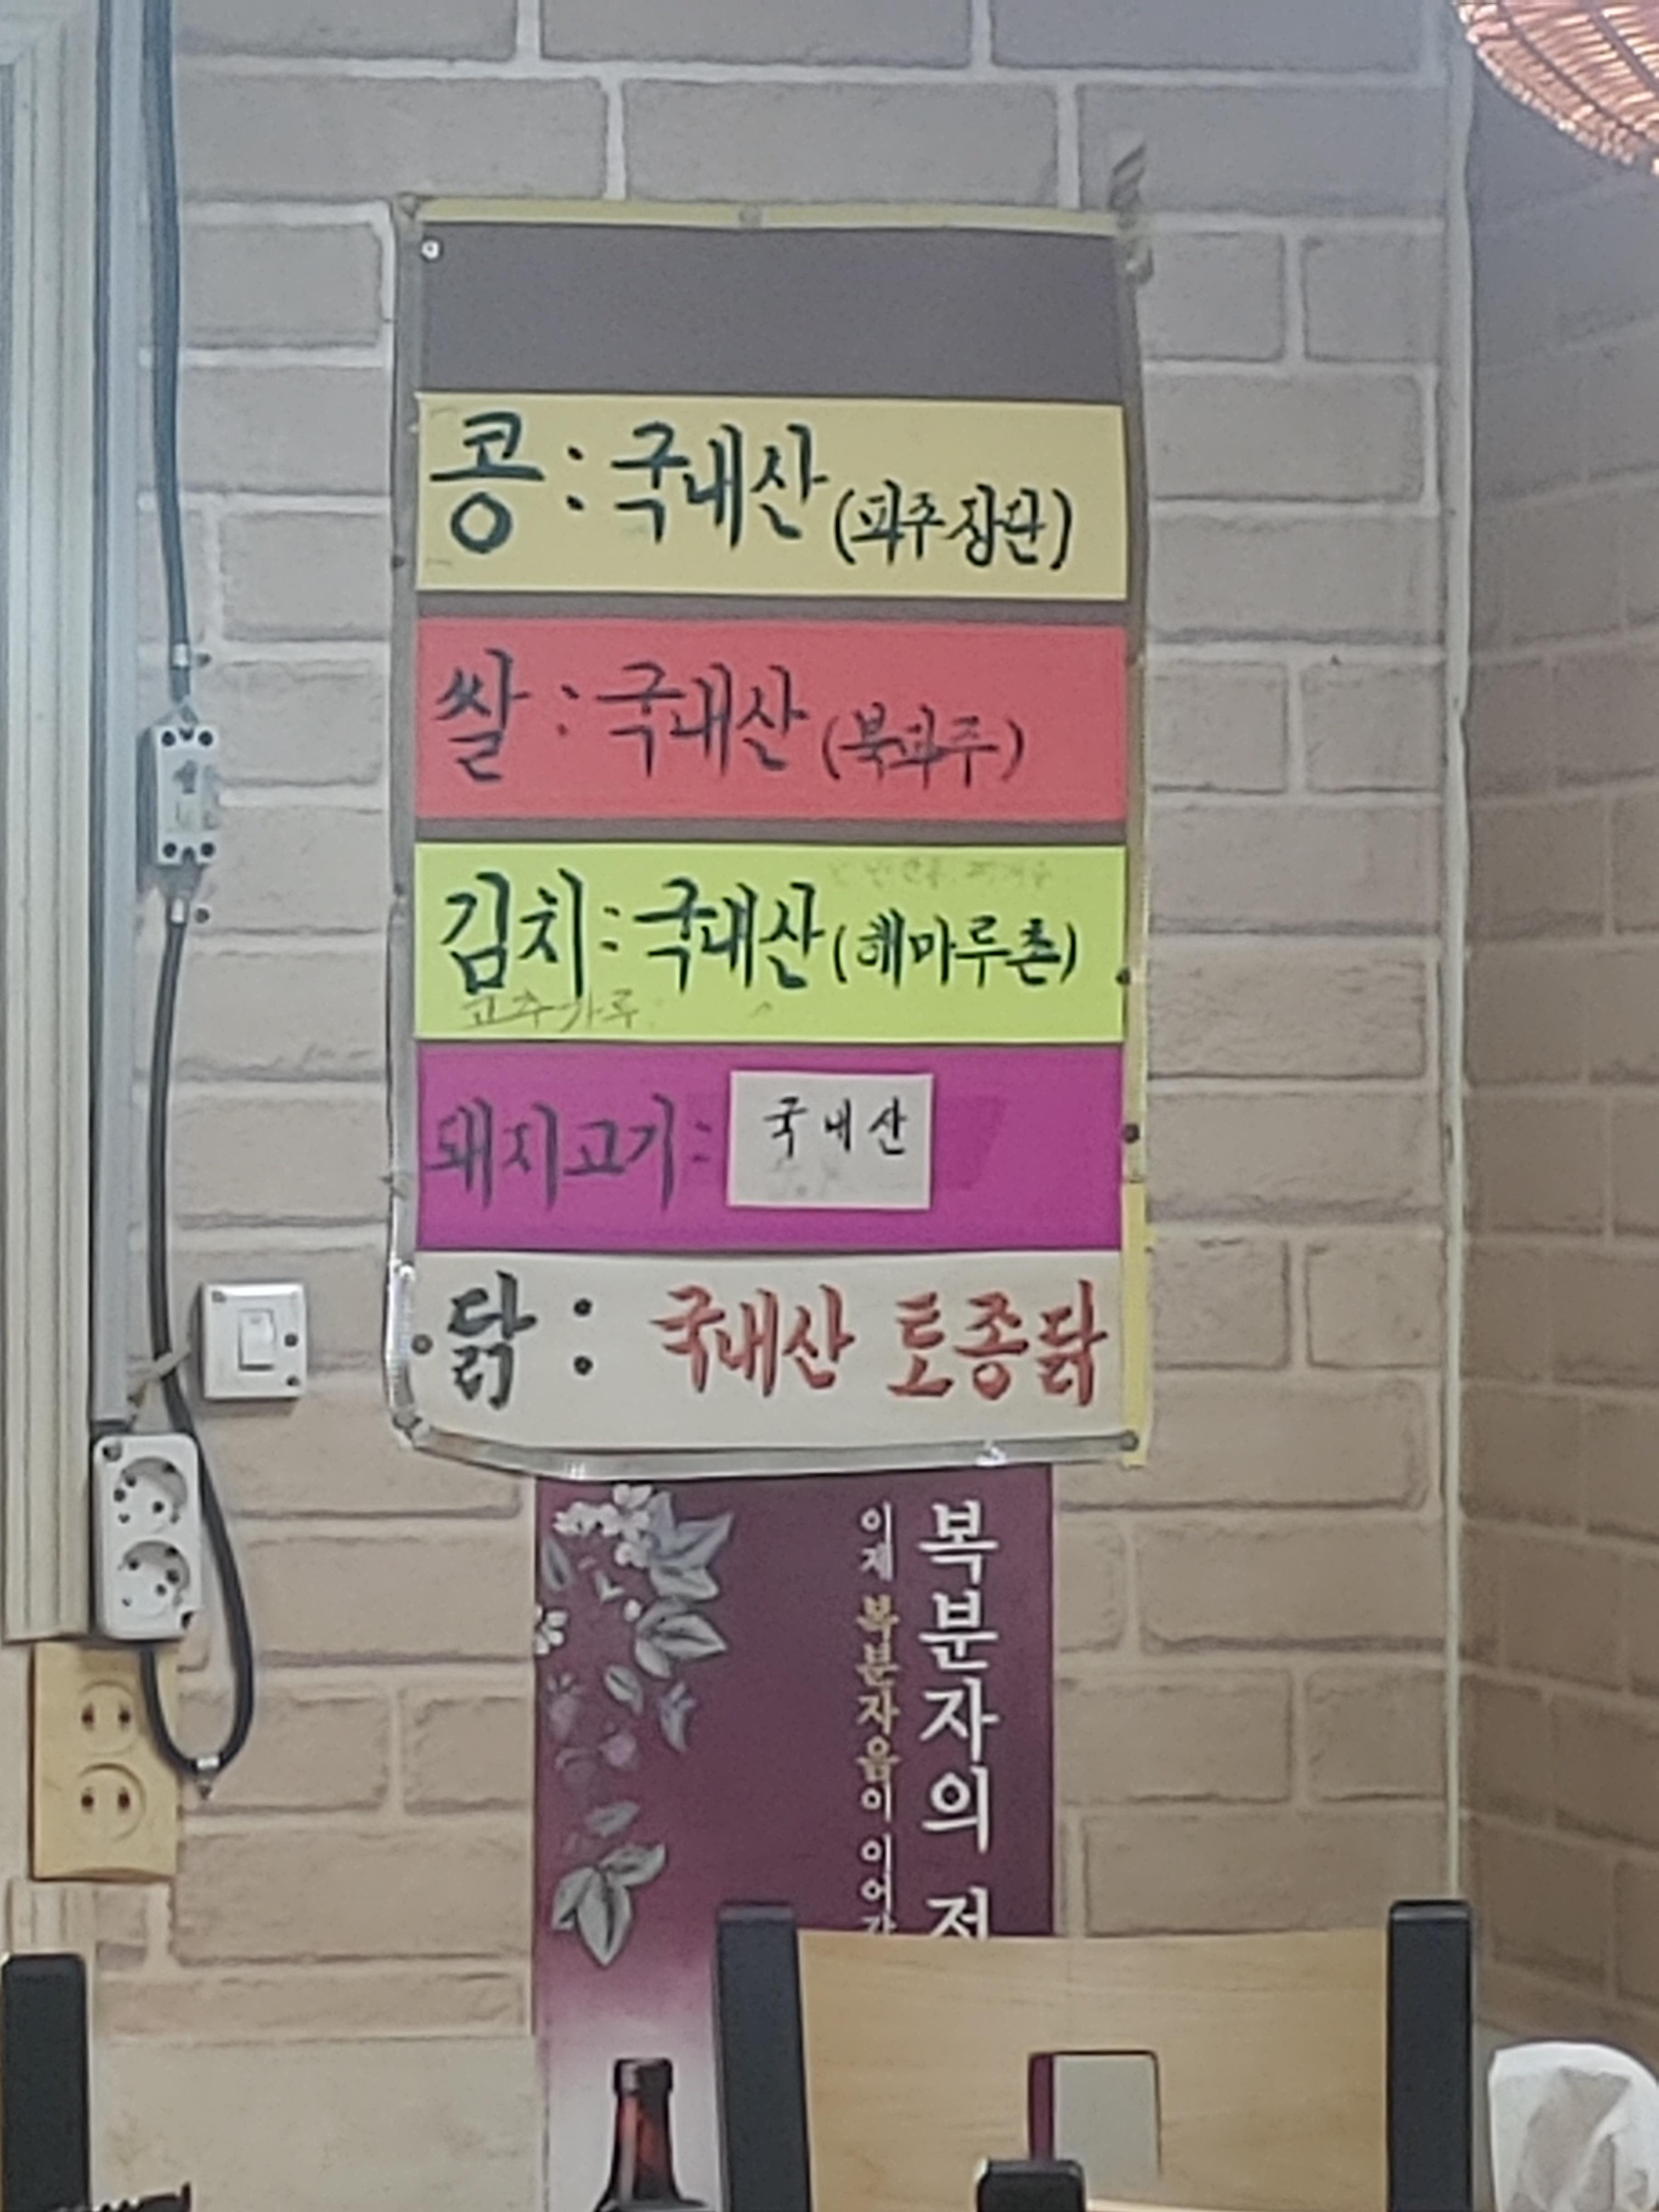 콩 : 국내산 (파주장단)
쌀 : 국내산 (북파주)
김치 : 국내산 (해마루촌)
고추가루
돼지고기 : 국내산
닭 : 국내산 토종닭
복분자의
이제 복분자음이 이어